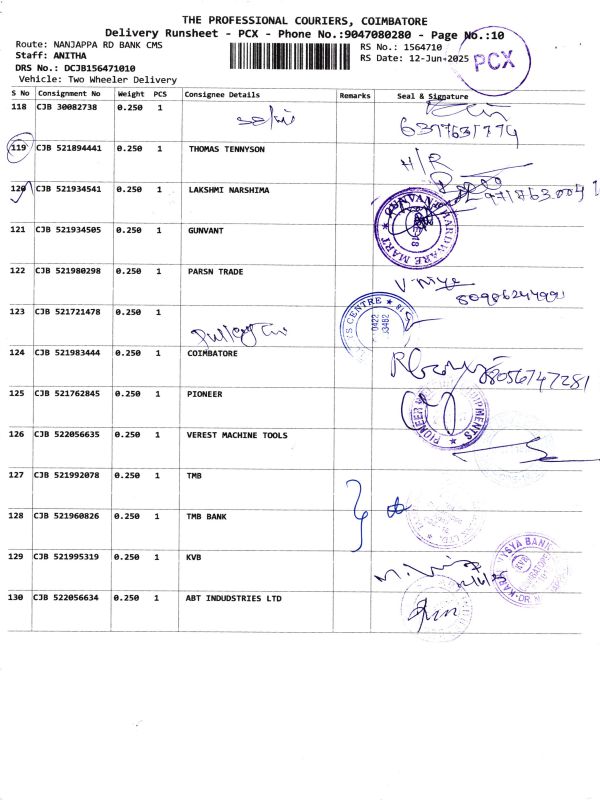 THE PROFESSIONAL COURIERS, COIMBATORE
Delivery Runsheet - PCX - Phone No.:9047080280 - Page No.:10
Route: NANJAPPA RD BANK CMS
RS No.: 1564710
Staff: ANITHA
RS Date: 12-Jun-2025
PCX
DRS No.: DCJB156471010
Vehicle: Two Wheeler Delivery
S No Consignment No Weight PCS Consignee Details Remarks Seal & Signature
118 CJB 30082738 0.250 1
119 CJB 521894441 0.250 1 THOMAS TENNYSON H/R
120 CJB 521934541 0.250 1 LAKSHMI NARSHIMA
121 CJB 521934505 0.250 1 GUNVANT
GUNVANT HARDWARE MART
122 CJB 521980298 0.250 1 PARSN TRADE
123 CJB 521721478 0.250 1
CENTRE
124 CJB 521983444 0.250 1 COIMBATORE
125 CJB 521762845 0.250 1 PIONEER
PIONEER
126 CJB 522056635 0.250 1 VEREST MACHINE TOOLS
127 CJB 521992078 0.250 1 TMB
128 CJB 521960826 0.250 1 TMB BANK
129 CJB 521995319 0.250 1 KVB
VYSYA BANK
130 CJB 522056634 0.250 1 ABT INDUDSTRIES LTD